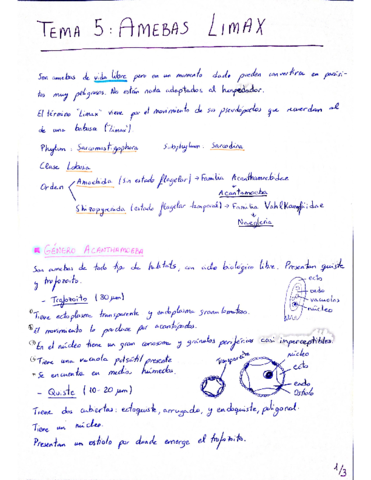 TEMA 5: AMEBAS LIMAX
Son amebas de vida libre pero en un momento dado pueden convertirse en parási-
tos muy peligrosos. No están nada adaptados al hospedador.
El término "Limax" viene por el movimiento de sus pseudópodos que recuerdan al
de una babosa ("limax").
Phylum: Sarcomastigophora Subphylum: Sarcodina
Clase Lobosa
Orden
Amoebida (sin estado flagelar) → Familia Acanthamoebidae
Acantamoeba
Shizopyrenida (estado flagelar temporal) → Familia Vahlkampfiidae
Naegleria
GÉNERO ACANTHAMOEBA
Son amebas de todo tipo de hábitats, con ciclo biológico libre. Presentan quiste
y trofozoito.
- Trofozoito (30 µm)
Tiene ectoplasma transparente y endoplasma granulomatoso.
El movimiento lo produce por acantópodos.
En el núcleo tiene un gran cariosoma y gránulos periféricos casi imperceptibles.
Tiene una vacuola pulsátil presente
Se encuentra en medios húmedos.
ecto
endo
vacuolas
núcleo
- Quiste (10-20 µm)
Tiene dos cubiertas: ectoquiste, arrugado, y endoquiste, poligonal.
Tiene un núcleo.
Presentan un ostiolo por donde emerge el trofozoito.
núcleo
ecto
endo
Ostiolo
1/3